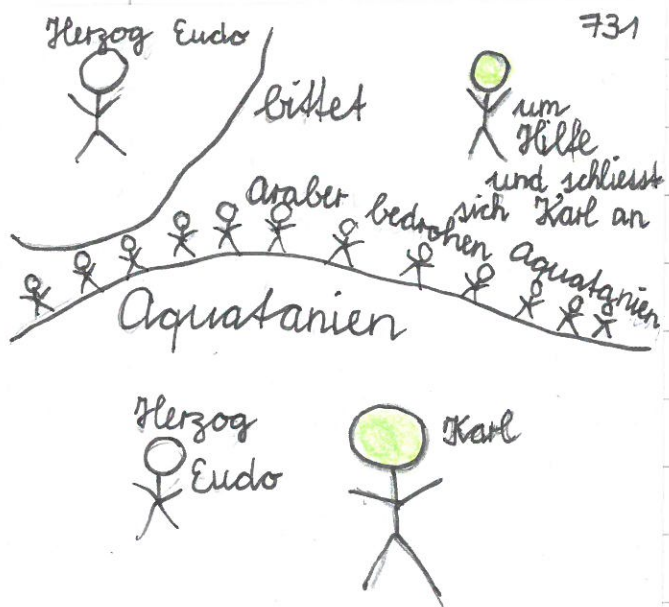 731
Herzog Eudo
bittet
um
Hilfe
und schliesst
sich Karl an
Araber bedrohen Aquatanien
Aquatanien
Herzog
Eudo
Karl